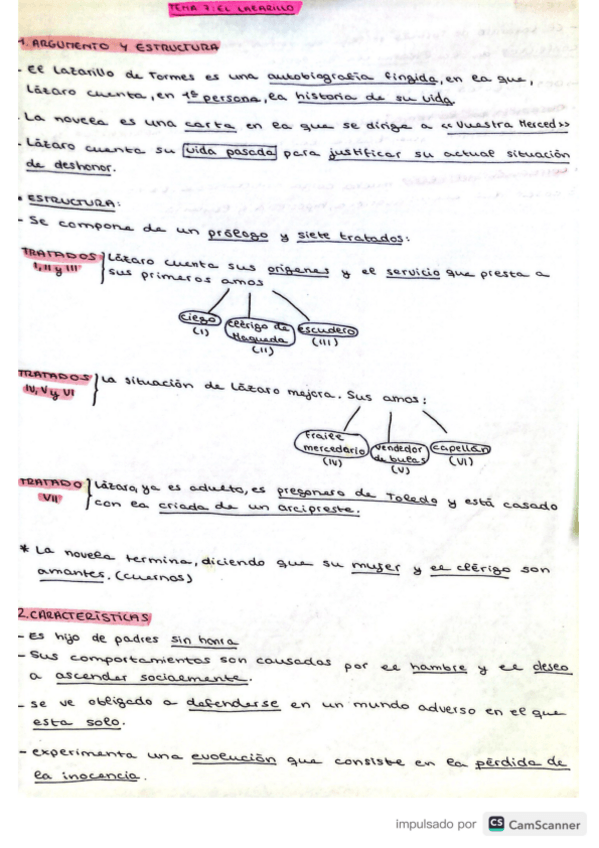 TEMA 7: EL LAZARILLO
1. ARGUMENTO Y ESTRUCTURA
- El Lazarillo de Tormes es una autobiografía fingida, en la que,
Lázaro cuenta, en 1ª persona, la historia de su vida.
- La novela es una carta en la que se dirige a << Vuestra Merced>>
- Lázaro cuenta su vida pasada para justificar su actual situación
de deshonor.
• ESTRUCTURA:
- Se compone de un prólogo y siete tratados:
TRATADOS I, II y III } Lázaro cuenta sus orígenes y el servicio que presta a
sus primeros amos
ciego (I)
clérigo de Maqueda (II)
escudero (III)
TRATADOS IV, V y VI } La situación de Lázaro mejora. Sus amos:
fraile mercedario (IV)
vendedor de bulas (V)
capellán (VI)
TRATADO VII } Lázaro, ya es adulto, es pregonero de Toledo y está casado
con la criada de un arcipreste.
* La novela termina, diciendo que su mujer y el clérigo son
amantes. (cuernos)
2. CARACTERÍSTICAS
- Es hijo de padres sin honra
- Sus comportamientos son causados por el hambre y el deseo
a ascender socialmente.
- se ve obligado a defenderse en un mundo adverso en el que
esta solo.
- experimenta una evolución que consiste en la pérdida de
la inocencia.
impulsado por CS CamScanner